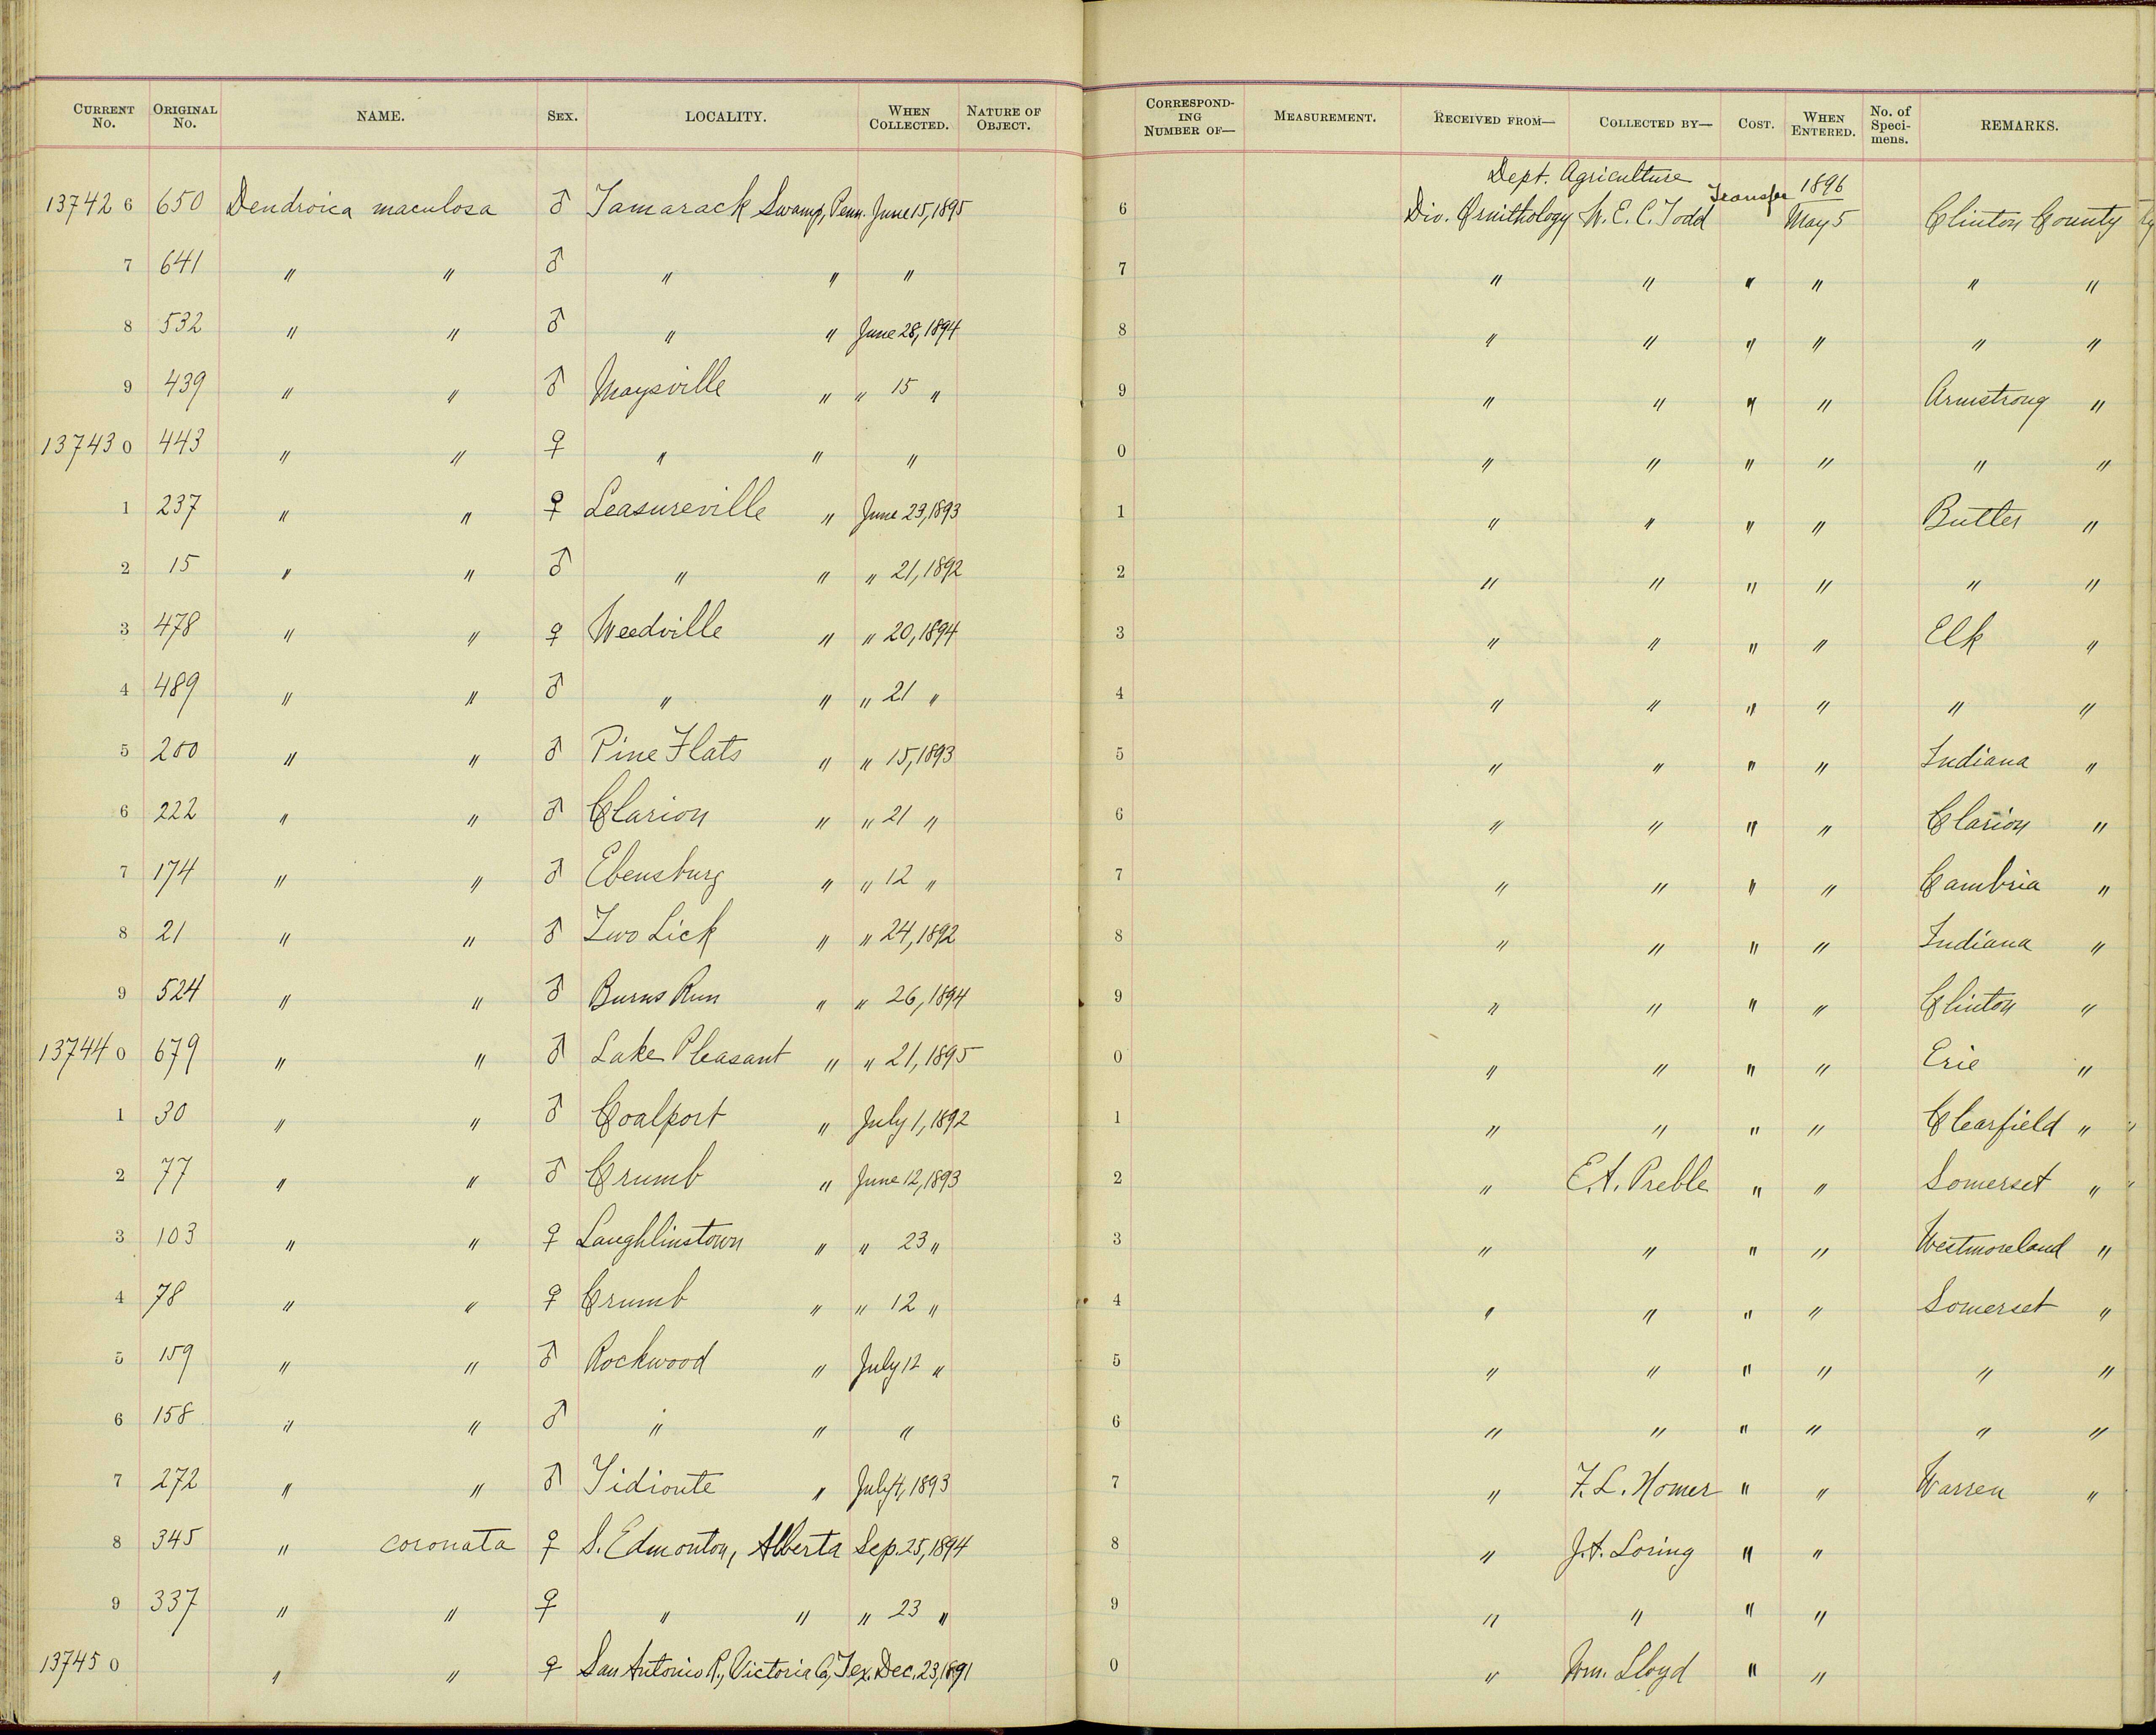 CURRENT No. ORIGINAL No. NAME. SEX. LOCALITY. WHEN COLLECTED. NATURE OF OBJECT. CORRESPONDING NUMBER OF— MEASUREMENT. RECEIVED FROM— COLLECTED BY— COST. WHEN ENTERED. No. of Specimens. REMARKS.
137426 650 Dendroica maculosa ♂ Tamarack Swamp, Penn. June 15, 1895 6 Dept. Agriculture Div. Ornithology W. E. C. Todd Transfer 1896 May 5 Clinton County
7 641 " " ♂ " " " 7 " " " " " "
8 532 " " ♂ " " June 28, 1894 8 " " " " " "
9 439 " " ♂ Maysville " " 15 " 9 " " " " Armstrong "
137430 443 " " ♀ " " " 0 " " " " " "
1 237 " " ♀ Leasureville " June 23, 1893 1 " " " " Butler "
2 15 " " ♂ " " " 21, 1892 2 " " " " " "
3 478 " " ♀ Weedville " " 20, 1894 3 " " " " Elk "
4 489 " " ♂ " " " 21 " 4 " " " " " "
5 200 " " ♂ Pine Flats " " 15, 1893 5 " " " " Indiana "
6 222 " " ♂ Clarion " " 21 " 6 " " " " Clarion "
7 174 " " ♂ Ebensburg " " 12 " 7 " " " " Cambria "
8 21 " " ♂ Two Lick " " 24, 1892 8 " " " " Indiana "
9 524 " " ♂ Burns Run " " 26, 1894 9 " " " " Clinton "
137440 679 " " ♂ Lake Pleasant " " 21, 1895 0 " " " " Erie "
1 30 " " ♂ Coalport " July 1, 1892 1 " " " " Clearfield "
2 77 " " ♂ Crumb " June 12, 1893 2 " E. A. Preble " " Somerset "
3 103 " " ♀ Laughlinstown " " 23 " 3 " " " " Westmoreland "
4 78 " " ♀ Crumb " " 12 " 4 " " " " Somerset "
5 159 " " ♂ Rockwood " July 12 " 5 " " " " " "
6 158 " " ♂ " " " 6 " " " " " "
7 272 " " ♂ Tidioute " July 4, 1893 7 " F. L. Homer " " Warren "
8 345 " coronata ♀ S. Edmonton, Alberta Sep. 25, 1894 8 " J. A. Loring " "
9 337 " " ♀ " " " 23 " 9 " " " "
137450 " " ♀ San Antonio R., Victoria Co, Tex. Dec. 23, 1891 0 " Wm. Lloyd " "